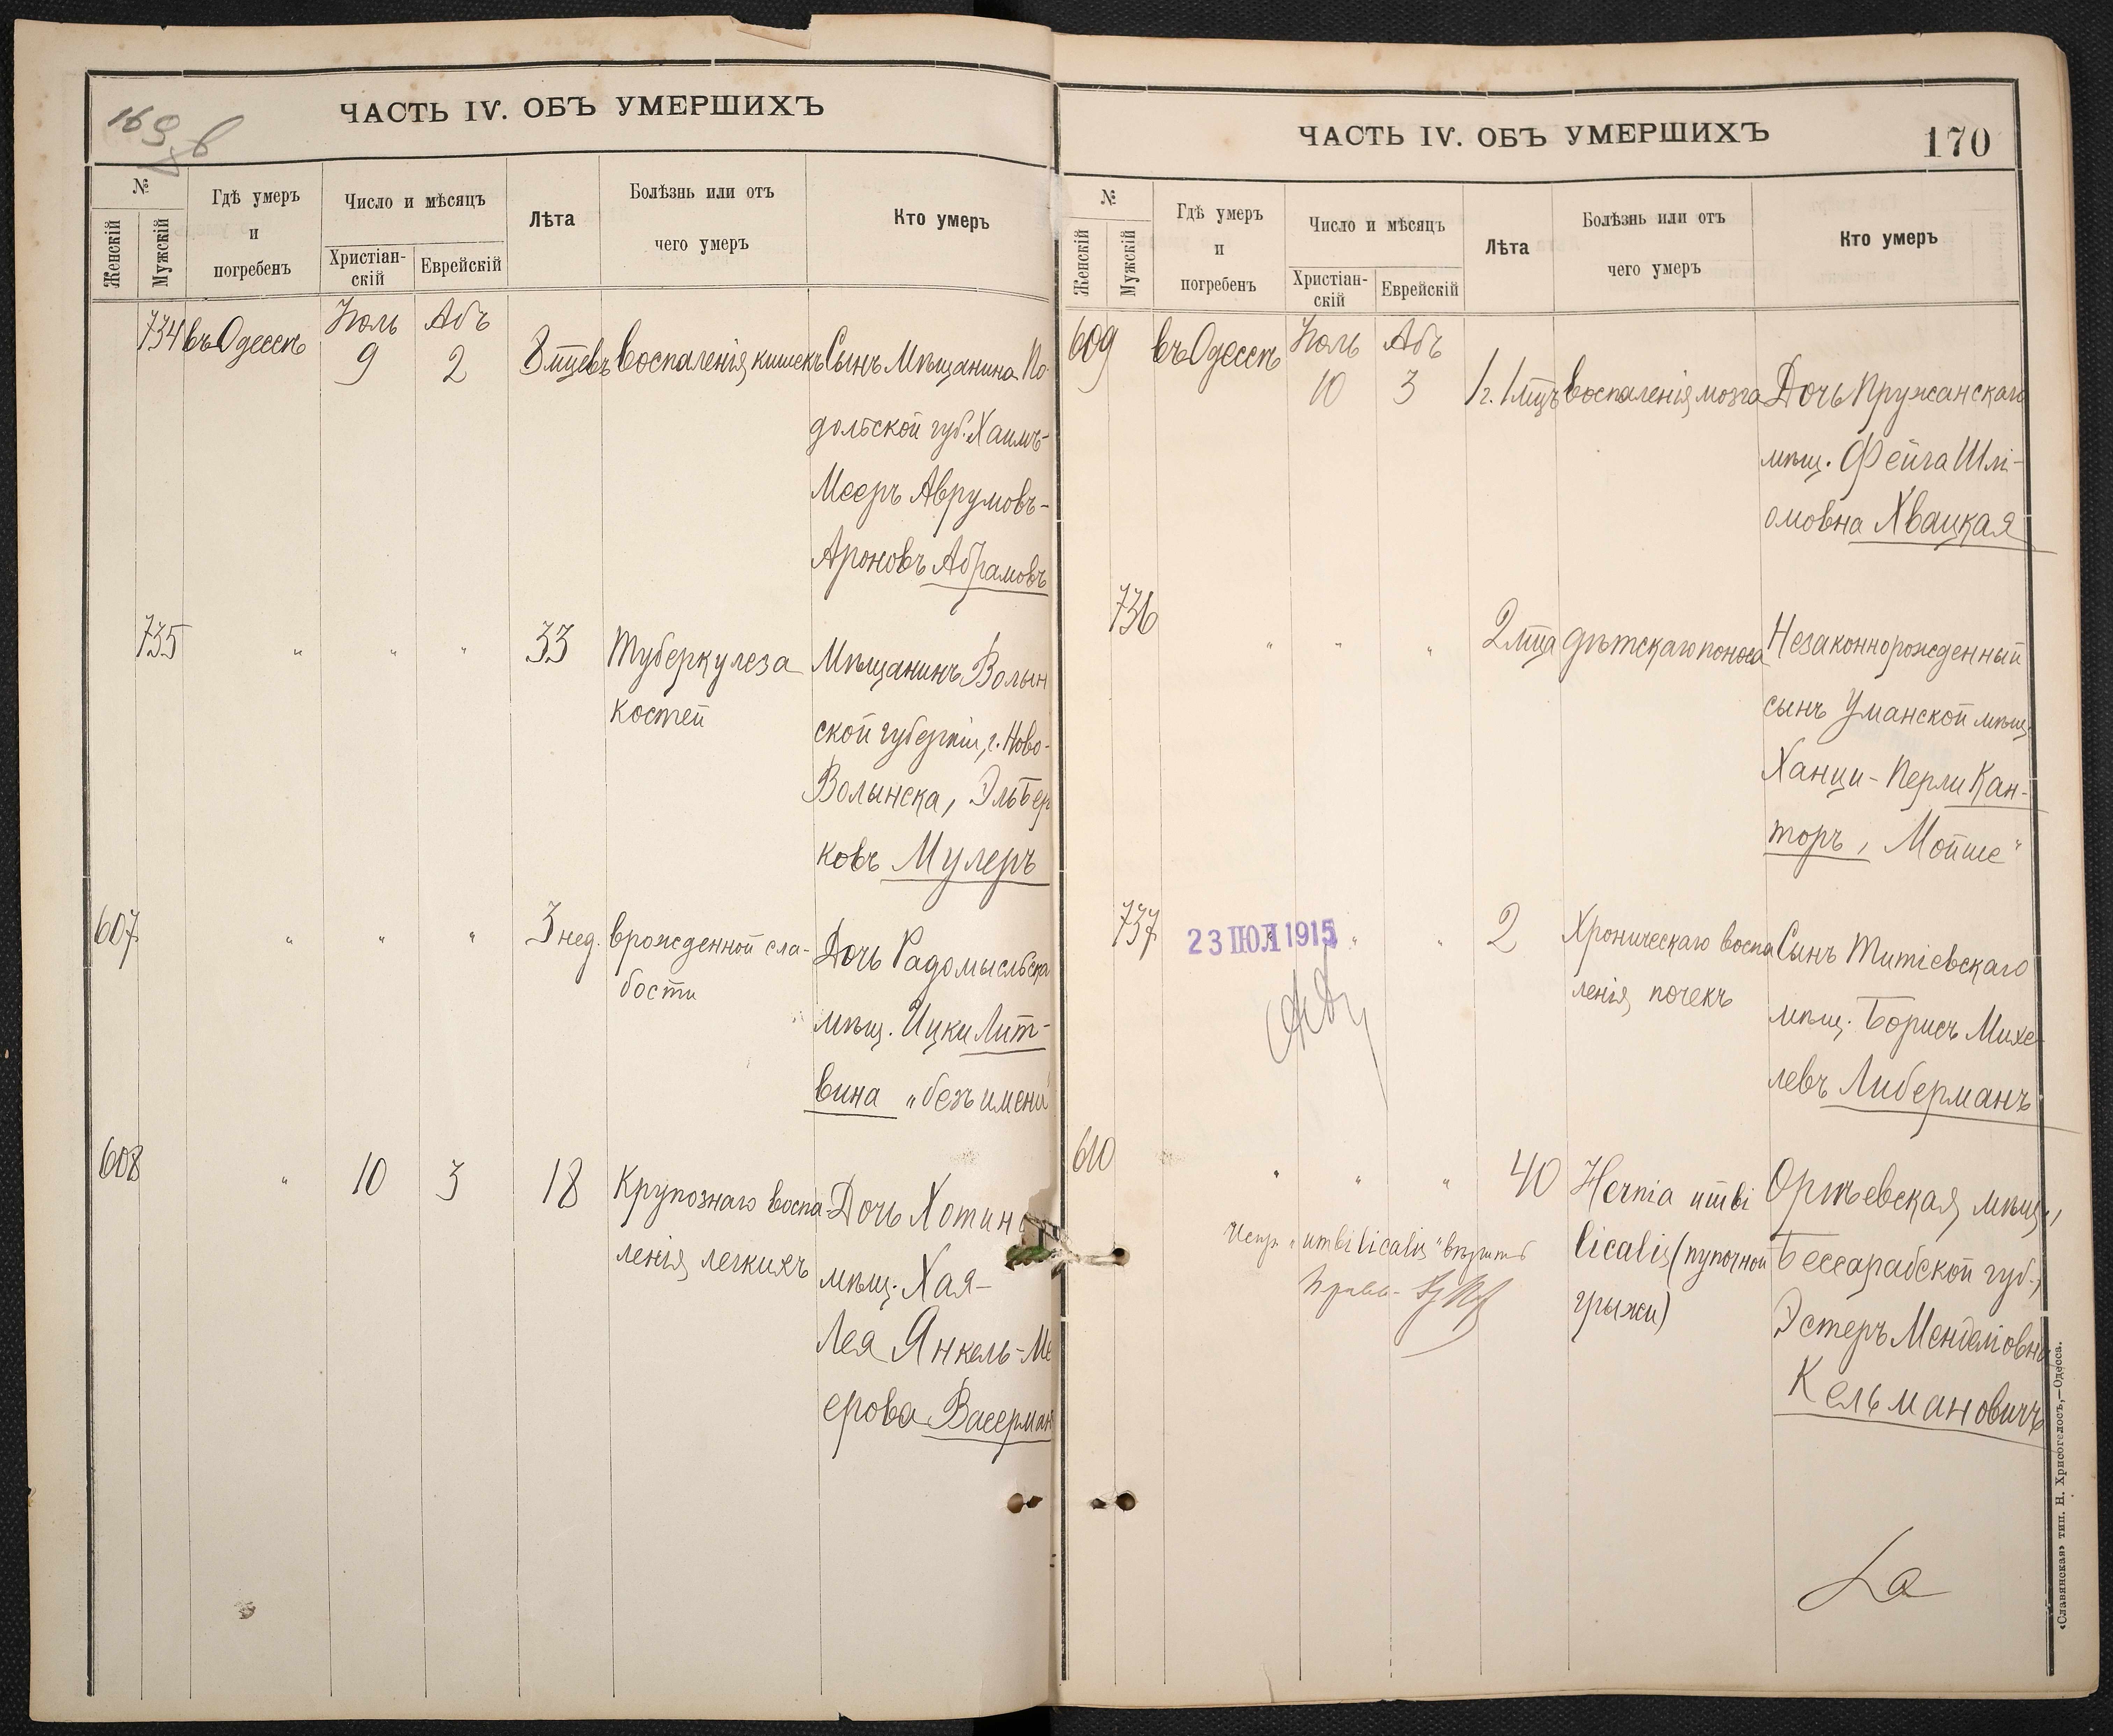 169 в
ЧАСТЬ IV. ОБЪ УМЕРШИХЪ
№
Женскій
Мужскій
Гдѣ умеръ
и
погребенъ
Число и мѣсяцъ
Христіан-
скій
Еврейскій
Лѣта
Болѣзнь или отъ
чего умеръ
Кто умеръ
734 въ Одессѣ Іюль 9 Абъ 2 8 мцевъ воспаленія кишекъ Сынъ Мѣщанина По-
дольской губ. Хаимъ-
Мееръ Аврумовъ-
Ароновъ Абрамовъ
735 " " " 33 Туберкулеза Мѣщанинъ Волын
костей
ской губерніи, г. Ново-
Волынска, Эль Бер
ковъ Мулеръ
607 " " " 3 нед. врожденной сла- Дочь Радомысльска
бости
мѣщ. Ицки Лит-
вина „безъ имени"
608 " 10 3 18 Крупознаго воспа- Дочь Хотинс
ленія легкихъ
мѣщ. Хая-
Лея Янкель-Ме
ерова Васерман
ЧАСТЬ IV. ОБЪ УМЕРШИХЪ
170
№
Женскій
Мужскій
Гдѣ умеръ
и
погребенъ
Число и мѣсяцъ
Христіан-
скій
Еврейскій
Лѣта
Болѣзнь или отъ
чего умеръ
Кто умеръ
609 въ Одессѣ Іюль 10 Абъ 3 1 г. 1 мцъ воспаленія мозга Дочь Пружанскаго
мѣщ. Фейга Шлі-
омовна Хвацкая
736 " " " 2 мца дѣтскаго поноса Незаконнорожденный
сынъ Уманской мѣщ.
Ханци-Перли Кан-
торъ, „Мойше"
737 " " " 2 Хроническаго воспа Сынъ Титіевскаго
23 ІЮЛ 1915
ленія почекъ
мѣщ. Борисъ Михе-
левъ Либерманъ
610 " " " 40 Hernia umbi Оргѣевская мѣщ.,
licalis (пупочной Бессарабской губ.,
грыжи)
Эстеръ Менделіовна
Кельмановичъ
Испр. „umbilicalis" вѣрить
«Славянская» тип. Н. Хрисогелосъ,—Одесса.